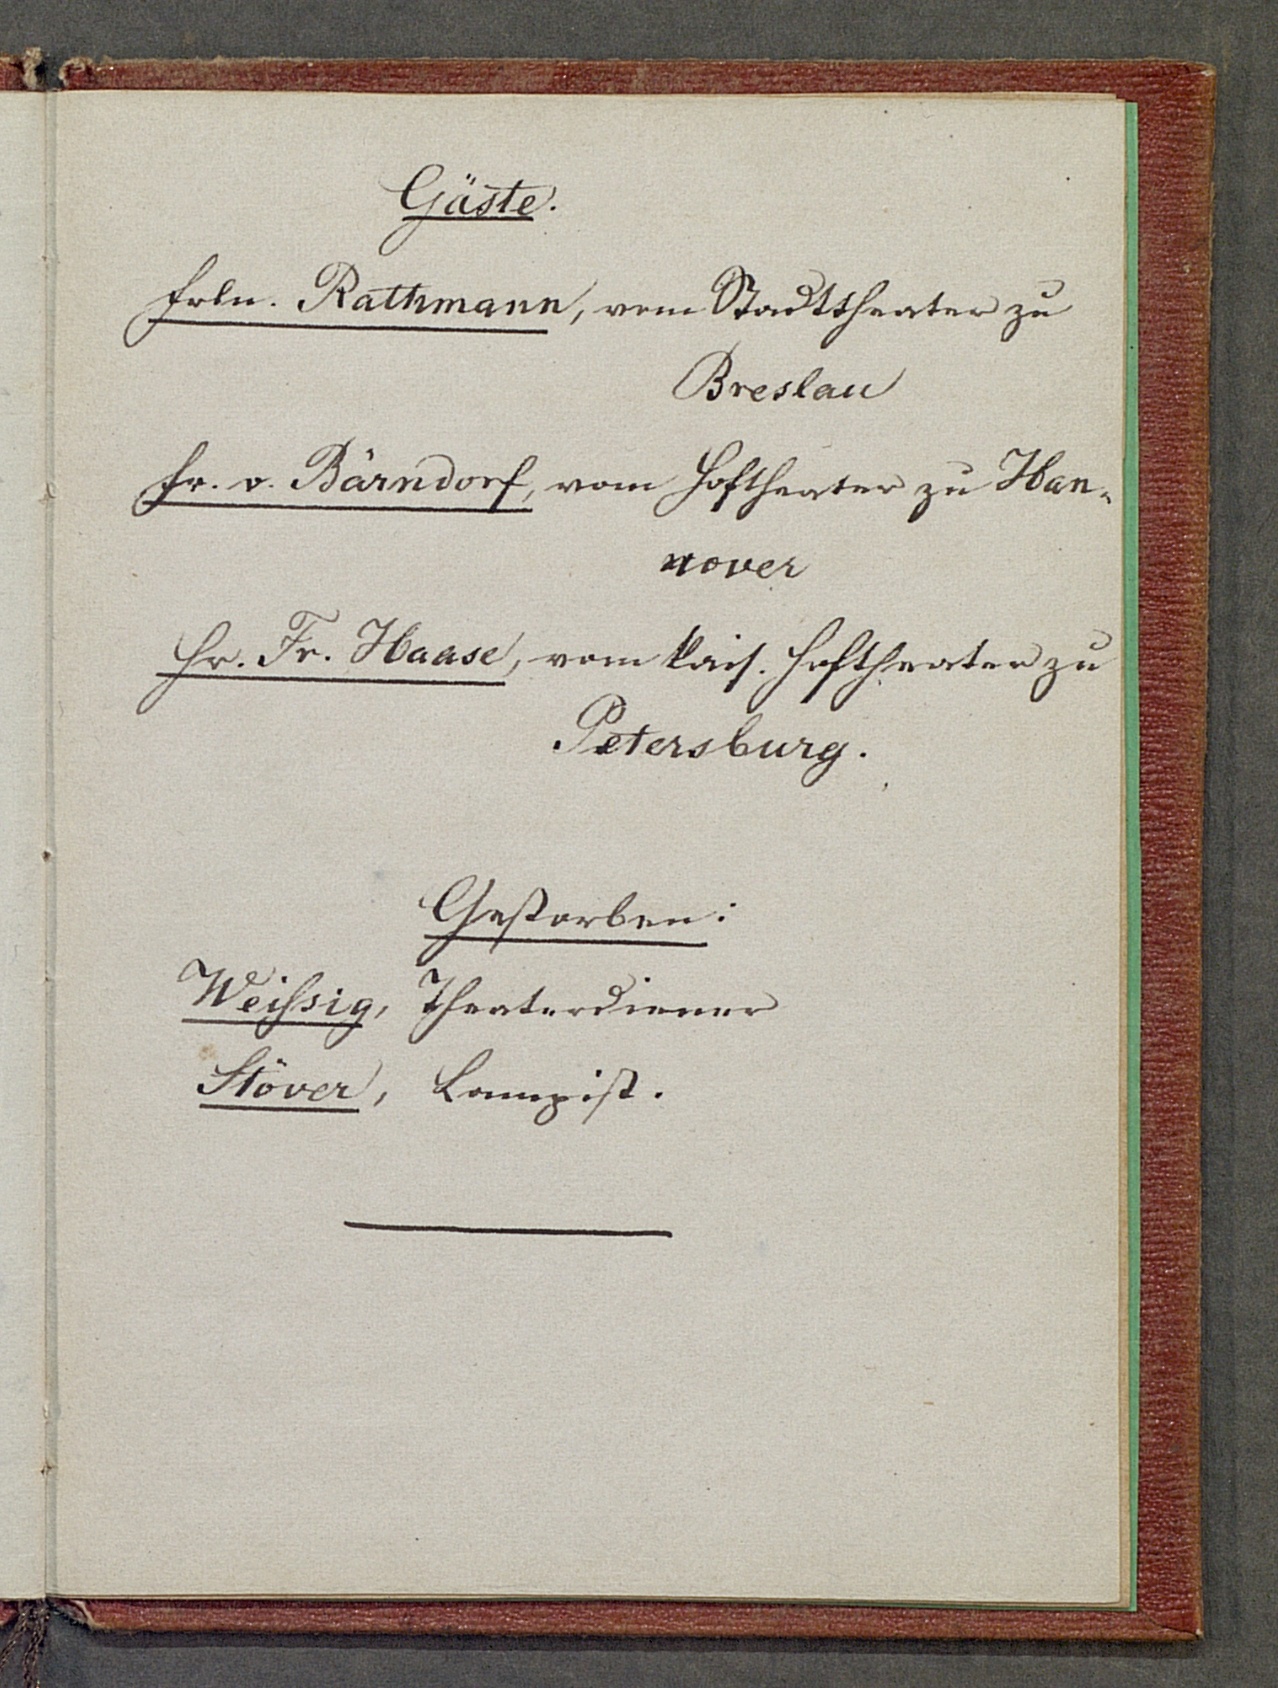 Gäste.
Frln. Rathmann, vom Stadttheater zu
Breslau
Fr. v. Bärndorf, vom Hoftheater zu Han-
nover
Hr. Fr. Haase, vom kais. Hoftheater zu
Petersburg.
Gestorben:
Weißsig, Theaterdiener
Stöver, Lampist.